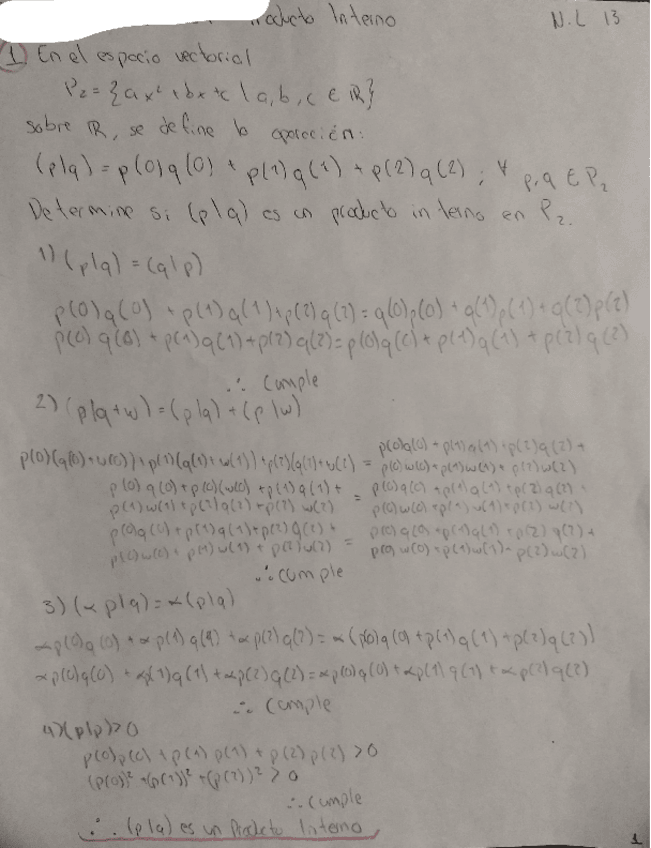 Producto Interno N.L 13
1) En el espacio vectorial
P₂ = {ax² + bx + c | a, b, c ∈ ℝ}
sobre ℝ, se define la operación:
(p|q) = p(0)q(0) + p(1)q(1) + p(2)q(2); ∀ p, q ∈ P₂
Determine si (p|q) es un producto interno en P₂.
1) (p|q) = (q|p)
p(0)q(0) + p(1)q(1) + p(2)q(2) = q(0)p(0) + q(1)p(1) + q(2)p(2)
p(0)q(0) + p(1)q(1) + p(2)q(2) = p(0)q(0) + p(1)q(1) + p(2)q(2)
∴ Cumple
2) (p|q+w) = (p|q) + (p|w)
p(0)(q(0)+w(0)) + p(1)(q(1)+w(1)) + p(2)(q(2)+w(2) = p(0)q(0) + p(1)q(1) + p(2)q(2) +
p(0)w(0) + p(1)w(1) + p(2)w(2)
p(0)q(0) + p(0)(w(0) + p(1)q(1) + = p(0)q(0) + p(1)q(1) + p(2)q(2) +
p(1)w(1) + p(2)q(2) + p(2) w(2) p(0)w(0) + p(1)w(1) + p(2)w(2)
p(0)q(0) + p(1)q(1) + p(2)q(2) + = p(0)q(0) + p(1)q(1) + p(2)q(2) +
p(0)w(0) + p(1)w(1) + p(2)w(2) p(0)w(0) + p(1)w(1) + p(2)w(2)
∴ cumple
3) (α p|q) = α(p|q)
αp(0)q(0) + αp(1)q(1) + αp(2)q(2) = α(p(0)q(0) + p(1)q(1) + p(2)q(2))
αp(0)q(0) + αp(1)q(1) + αp(2)q(2) = αp(0)q(0) + αp(1)q(1) + αp(2)q(2)
∴ Cumple
4) (p|p) > 0
p(0)p(0) + p(1)p(1) + p(2)p(2) > 0
(p(0))² + (p(1))² + (p(2))² > 0
∴ Cumple
∴ (p|q) es un Producto Interno
1